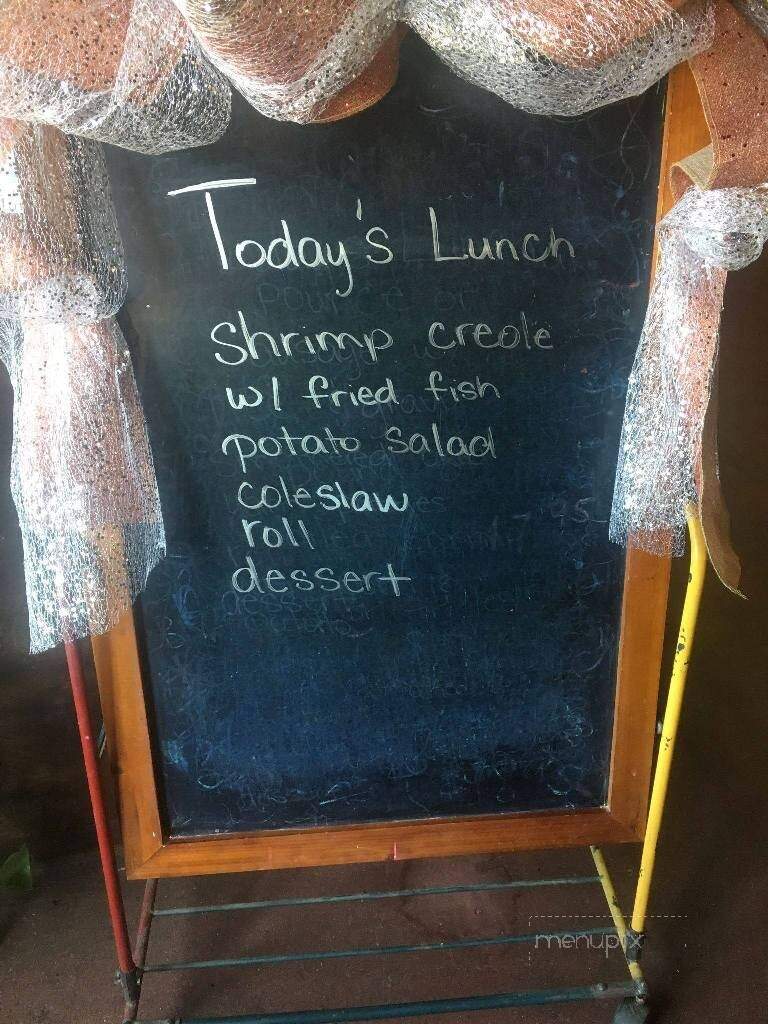 Today's Lunch
Shrimp creole
w/ fried fish
potato salad
coleslaw
roll
dessert
menupix